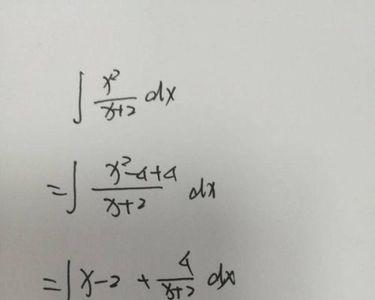 ∫ x²/(x+2) dx
= ∫ (x²-4+4)/(x+2) dx
= ∫ x-2 + 4/(x+2) dx